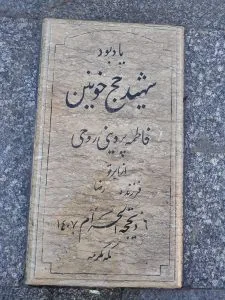 یادبود
شهید حج خونین
فاطمه پروینی روحی
از ابرقو
فرزند رضا
۶ ذیحجة الحرام ۱۴۰۷
مکه مکرمه